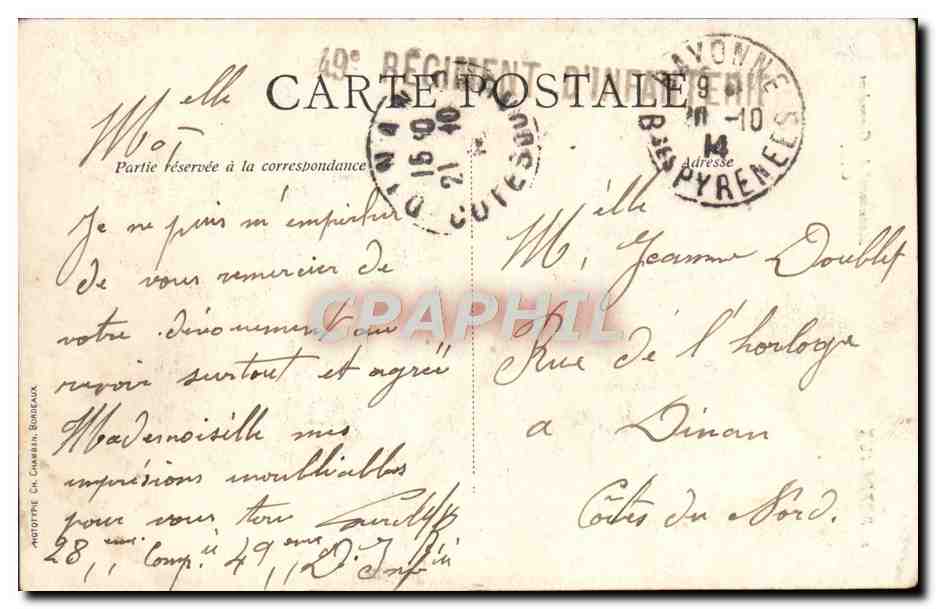 49e RÉGIMENT D'INFANTERIE
CARTE POSTALE
BAYONNE
9
10 -10
14
Bses PYRENEES
DINAN
15 10
21 10
COTES DU
Partie réservée à la correspondance
Adresse
Melle
Je ne puis m'empêcher
de vous remercier de
votre dévouement au
revoir surtout et agréé
Mademoiselle mes
imprésions inoubliables
pour vous
28 eme Comp. 49 eme D'Inf
Melle, Jeanne Doublet
Rue de l'horloge
a Dinan
Côtes du Nord.
PHOTOTYPIE CH. CHAMBON, BORDEAUX
CPAPHIL